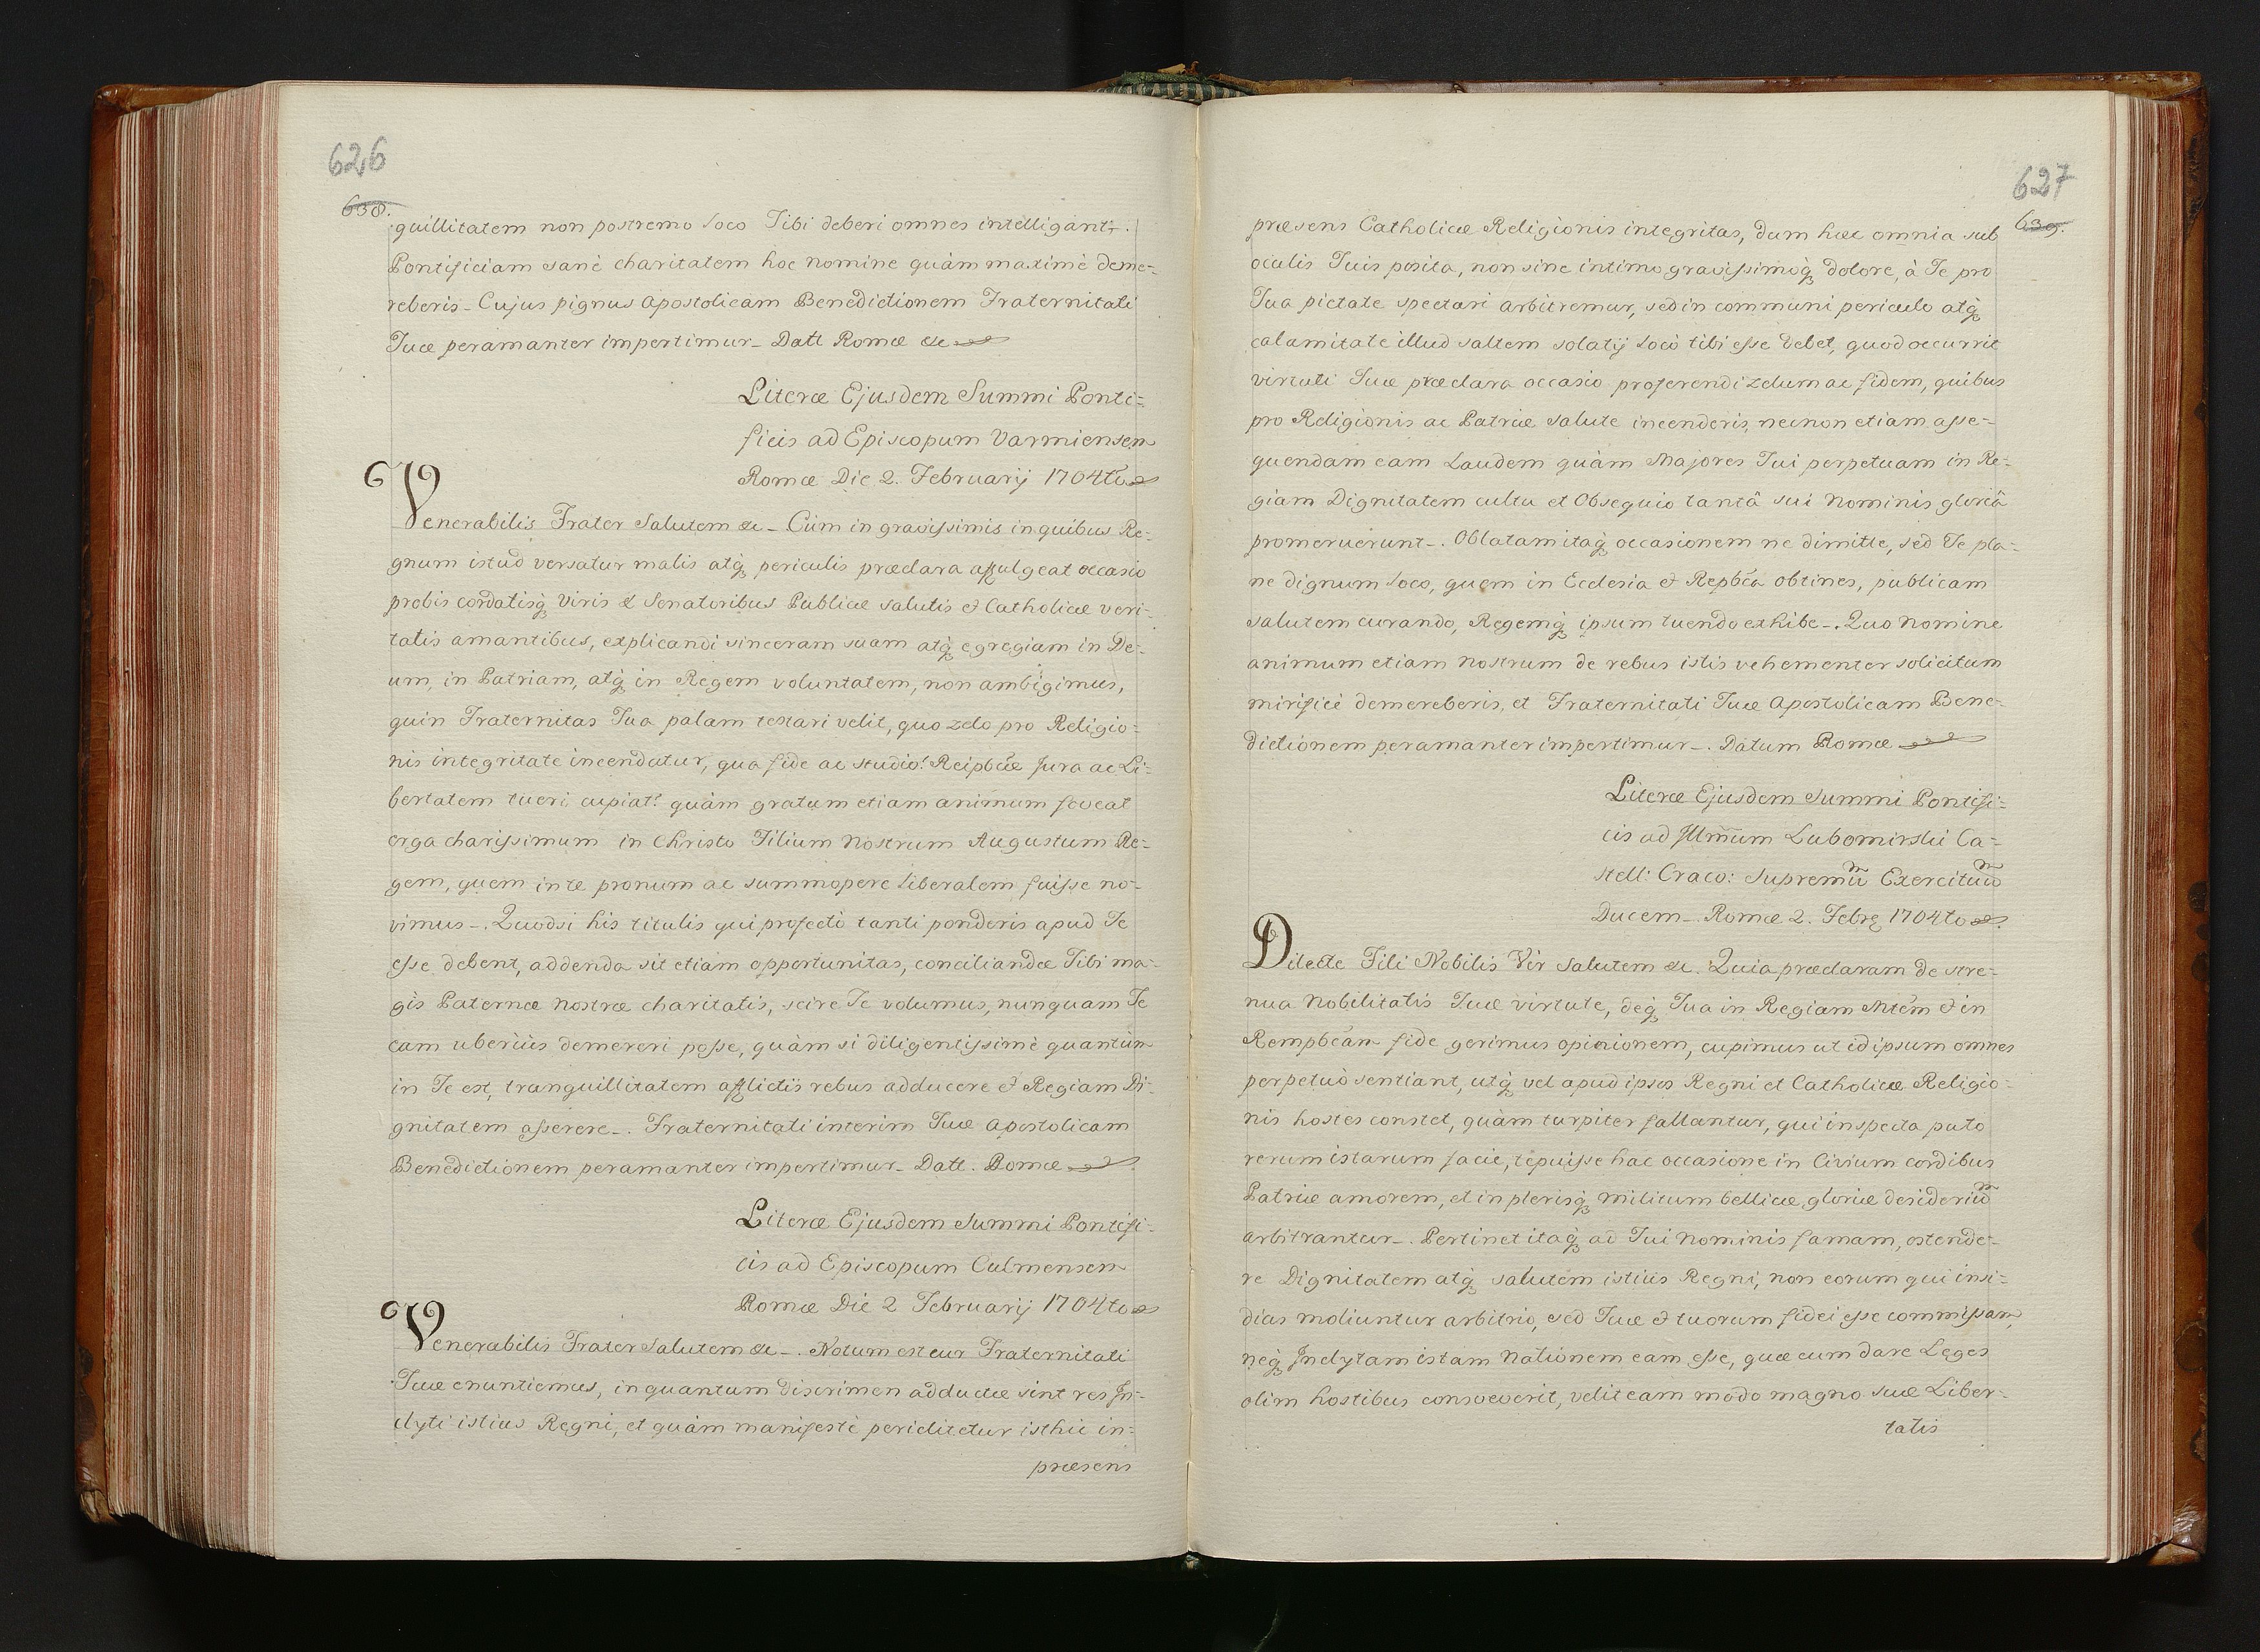 626
638.
quillitatem non postremo loco Tibi deberi omnes intelligant.
Pontificiam sanè charitatem hoc nomine quàm maximè deme-
reberis. Cujus pignus Apostolicam Benedictionem Fraternitati
Tuæ peramanter impertimur. Datt Romæ &c
Literæ Ejusdem Summi Ponti=
ficis ad Episcopum Varmiensem
Romæ Die 2. Februarij 1704to
Venerabilis Frater Salutem &c. Cùm in gravissimis in quibus Re=
gnum istud versatur malis atq; periculis præclara affulgeat occasio
probis cordatisq; Viris & Senatoribus Publicæ salutis et Catholicæ veri-
tatis amantibus, explicandi sinceram suam atq; egregiam in De=
um, in Patriam, atq; in Regem voluntatem, non ambigimus,
quin Fraternitas Tua palam testari velit, quo zelo pro Religio=
nis integritate incendatur, qua fide ac studio! Reipbcæ Jura ac Li=
bertatem tueri cupiat? quàm gratum etiam animum foveat
erga charissimum in Christo Filium Nostrum Augustum Re=
gem, quem in te pronum ac summopere liberalem fuisse no-
vimus. Quodsi his titulis qui profectò tanti ponderis apud Te
esse debent, addenda sit etiam opportunitas, conciliandæ Tibi ma-
gis Paternæ nostræ charitatis, scire Te volumus, nunquam Te
eam uberiùs demereri posse, quàm si diligentissimè quantùm
in Te est, tranquillitatem afflictis rebus adducere et Regiam Di=
gnitatem asserere. Fraternitati interim Tuæ Apostolicam
Benedictionem peramanter impertimur. Datt. Romæ
Literæ Ejusdem Summi Pontifi=
cis ad Episcopum Culmensem
Romæ Die 2 Februarij 1704to
Venerabilis Frater Salutem &c. Notum est cur Fraternitati
Tuæ enuntiemus, in quantum discrimen adductæ sint res In=
clyti istius Regni, et quàm manifestè periclitetur isthic in=
præsens
627
639.
præsens Catholicæ Religionis integritas, dum hæc omnia sub
oculis Tuis posita, non sine intimo gravissimoq; dolore, à Te pro
Tua pietate spectari arbitremur, sed in communi periculo atq;
calamitate illud saltem solatij locò tibi esse debet, quod occurrit
virtuti Tuæ præclara occasio proferendi zelum ac fidem, quibus
pro Religionis ac Patriæ salute incenderis, necnon etiam asse=
quendam eam Laudem quàm Majores Tui perpetuam in Re=
giam Dignitatem cultu et Obsequio tantâ sui Nominis gloriâ
promeruerunt. Oblatam itaq; occasionem ne dimitte, sed Te pla=
ne dignum loco, quem in Ecclesia et Repbca obtines, publicam
salutem curando, Regemq; ipsum tuendo exhibe. Quo Nomine
animum etiam Nostrum de rebus istis vehementer solicitum
mirificè demereberis, et Fraternitati Tuæ Apostolicam Bene=
dictionem peramanter impertimur. Datum Romæ
Literæ Ejusdem Summi Pontifi=
cis ad Jllmum Lubomirski Ca=
stell: Craco: Supremū Exercituū
Ducem. Romæ 2. Febrę 1704to
Dilecte Fili Nobilis Vir Salutem &c. Quia præclaram de stre=
nua Nobilitatis Tuæ virtute, deq; Tua in Regiam Mtem et in
Rempbcam fide gerimus opinionem, cupimus ut id ipsum omnes
perpetuò sentiant, utq; vel apud ipsos Regni et Catholicæ Religio=
nis hostes constet, quàm turpiter fallantur, qui inspecta puto
rerum istarum facie, tepuisse hac occasione in Civium cordibus
Patriæ amorem, et in plerisq; militum bellicæ gloriæ desideriū
arbitrantur. Pertinet itaq; ad Tui Nominis famam, ostende=
re Dignitatem atq; salutem istius Regni, non eorum qui insi=
dias moliuntur arbitrio, sed Tuæ et tuorum fidei esse commissam,
neq; Jnclytam istam Nationem eam esse, quæ cum dare Leges
olim hostibus consveverit, velit eam modo magno suæ Liber=
tatis